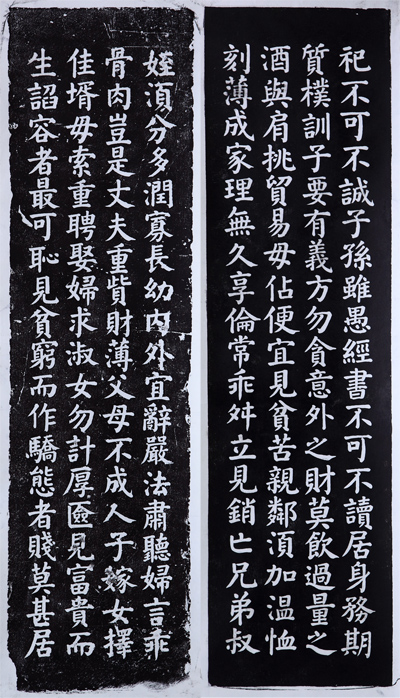 祀不可不誠子孫雖愚經書不可不讀居身務期
質樸訓子要有義方勿貪意外之財莫飲過量之
酒與肩挑貿易毋佔便宜見貧苦親鄰須加溫恤
刻薄成家理無久享倫常乖舛立見銷亡兄弟叔
姪湏分多潤寡長幼内外宜辭嚴法肅聽婦言乖
骨肉豈是丈夫重貲財薄父母不成人子嫁女擇
佳壻毋索重聘娶婦求淑女勿計厚匳見富貴而
生諂容者最可恥見貧窮而作驕態者賤莫甚居